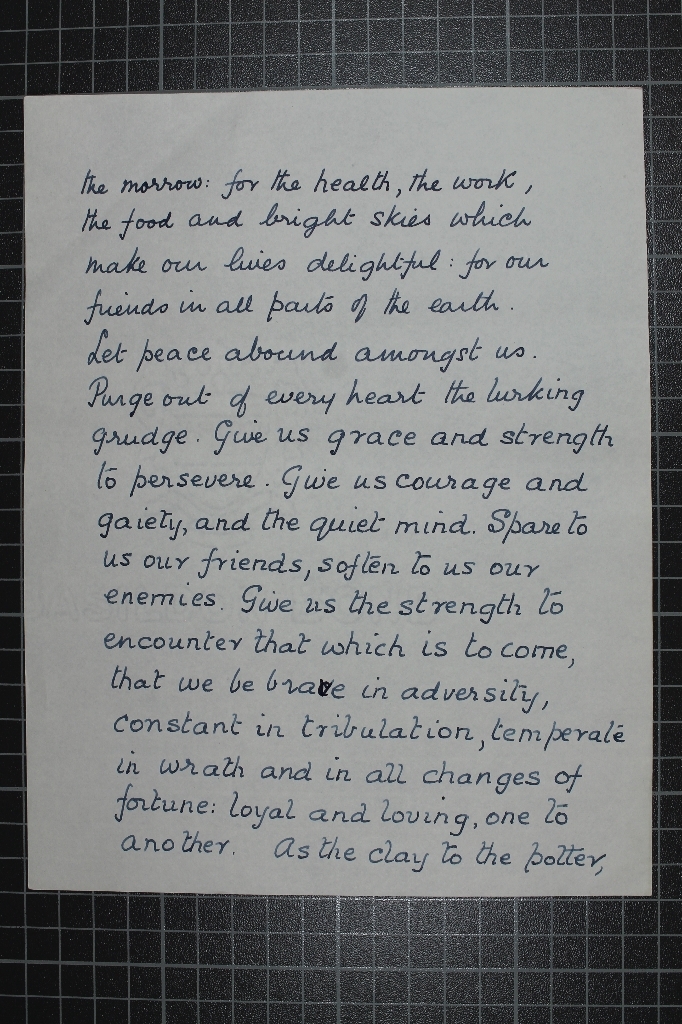 the morrow: for the health, the work,
the food and bright skies which
make our lives delightful: for our
friends in all parts of the earth.
Let peace abound amongst us.
Purge out of every heart the lurking
grudge. Give us grace and strength
to persevere. Give us courage and
gaiety, and the quiet mind. Spare to
us our friends, soften to us our
enemies. Give us the strength to
encounter that which is to come,
that we be brave in adversity,
constant in tribulation, temperate
in wrath and in all changes of
fortune: loyal and loving, one to
another. As the clay to the potter,